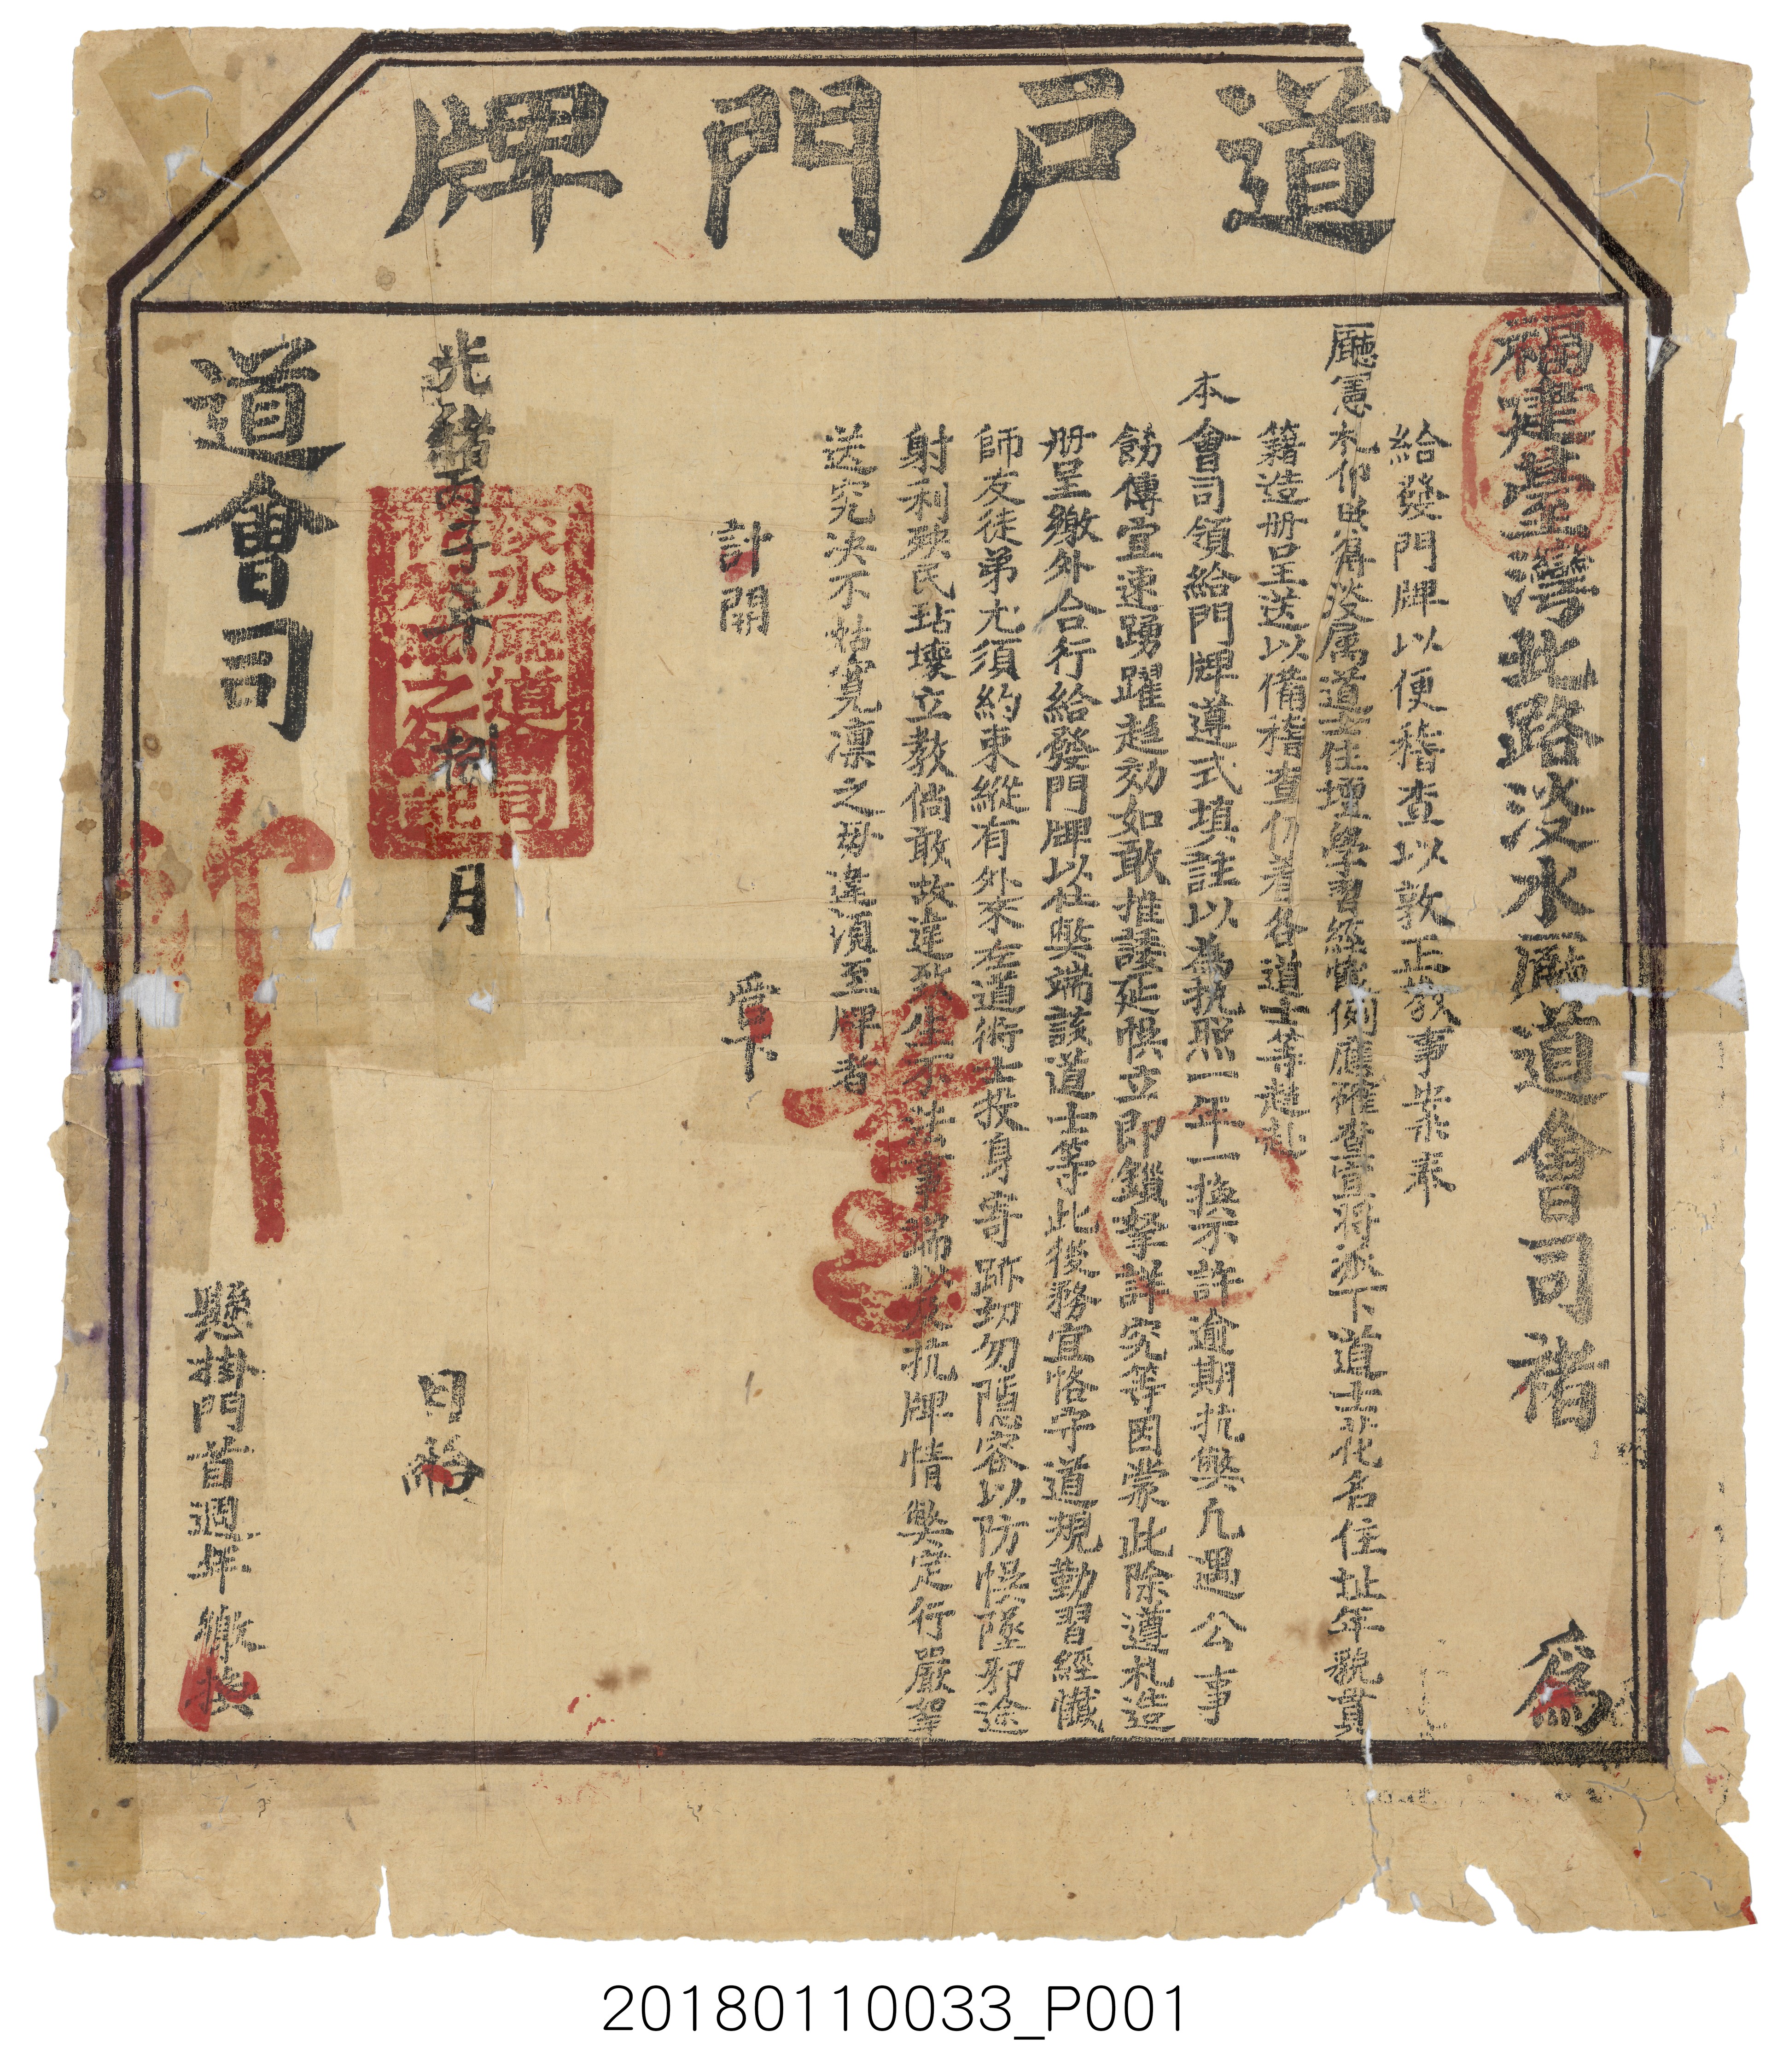 道戶門牌
福建臺灣北路淡水廳道會司褚 爲
給發門牌以便稽查以敦正教事案奉
廳憲札仰照得淡属道士住壇學習經懺例應確查宜將派下道士花名住址年貌貫
籍造册呈送以備稽查仍着各道士等赴
本會司領給門牌遵式填註以為执照一年一換不許逾期抗獘凡遇公事
飭傳宜速踴躍趋効如敢推諉延悞立即鎖拏詳究等因蒙此除遵札造
册呈繳外合行給發門牌以杜獘端該道士等此後務宜恪守道規勤習經懺
師友徒弟尤須約束縱有外來左道術士投身寄跡切勿隱容以防悞墜邪途
射利殃民玷壞立教倘敢故違致生不法事端以及抗牌情獘定行嚴拏
送究决不姑寬凛之毋違須至牌者
計開
受下
光緒丙子年捌月
日給
道會司
行
懸掛門首週年繳換
淡水廳道會司
之鈐記
20180110033_P001